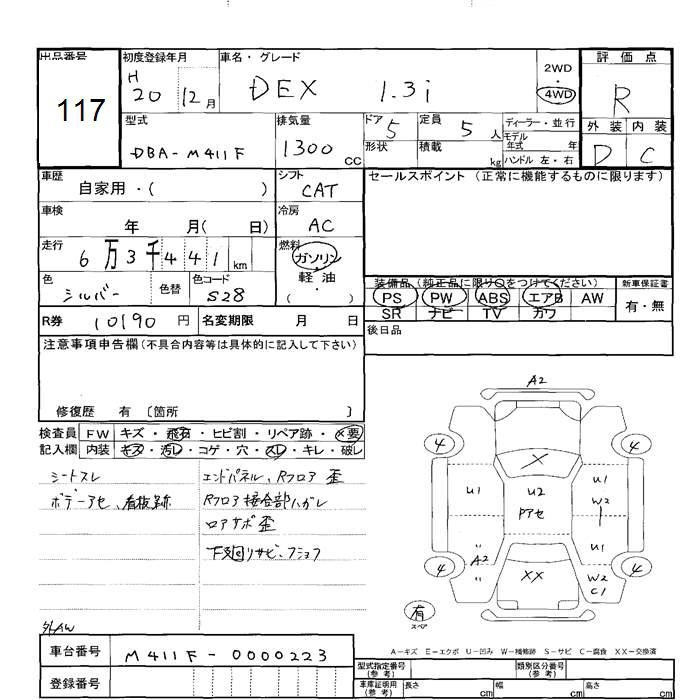 出品番号
117
初度登録年月
H
20 12 月
車名・グレード
DEX 1.3i
2WD
・
4WD
評価点
R
外装 内装
D C
型式
DBA-M411F
排気量
1300 CC
ドア 5
形状
定員 5 人
積載 kg
ディーラー・並行
モデル
年式 年
ハンドル 左・右
車歴
自家用・( )
シフト
CAT
セールスポイント (正常に機能するものに限ります)
車検
年 月( 日)
冷房
AC
走行
6 万 3 千 4 4 1 km
燃料
ガソリン
・
軽油
( )
色
シルバー
色替
色コード
S28
装備品 (純正品に限り○をつけてください)
PS PW ABS エアB AW
SR ナビ TV カワ
新車保証書
有・無
R券 10190 円
名変期限 月 日
後日品
注意事項申告欄(不具合内容等は具体的に記入して下さい)
修復歴 有 〔箇所 〕
検査員
記入欄
FW キズ・飛石・ヒビ割・リペア跡・×要
内装 キズ・汚レ・コゲ・穴・スレ・キレ・破レ
シートスレ
ボデーアセ、看板跡
エンドパネル、Rフロア 歪
Rフロア接合部ハガレ
ロアサポ歪
下廻リサビ、フショク
外AW
A2
4 4
X
U1 U2 U1
Pアセ W2
A2 U1
4 4
XX W2
C1
有
スペア
A-キズ E-エクボ U-凹み W-補修跡 S-サビ C-腐食 XX-交換済
車台番号 M411F-0000223
登録番号
型式指定番号
(参考)
類別区分番号
(参考)
車庫証明用
(参考)
長さ cm 幅 cm 高さ cm